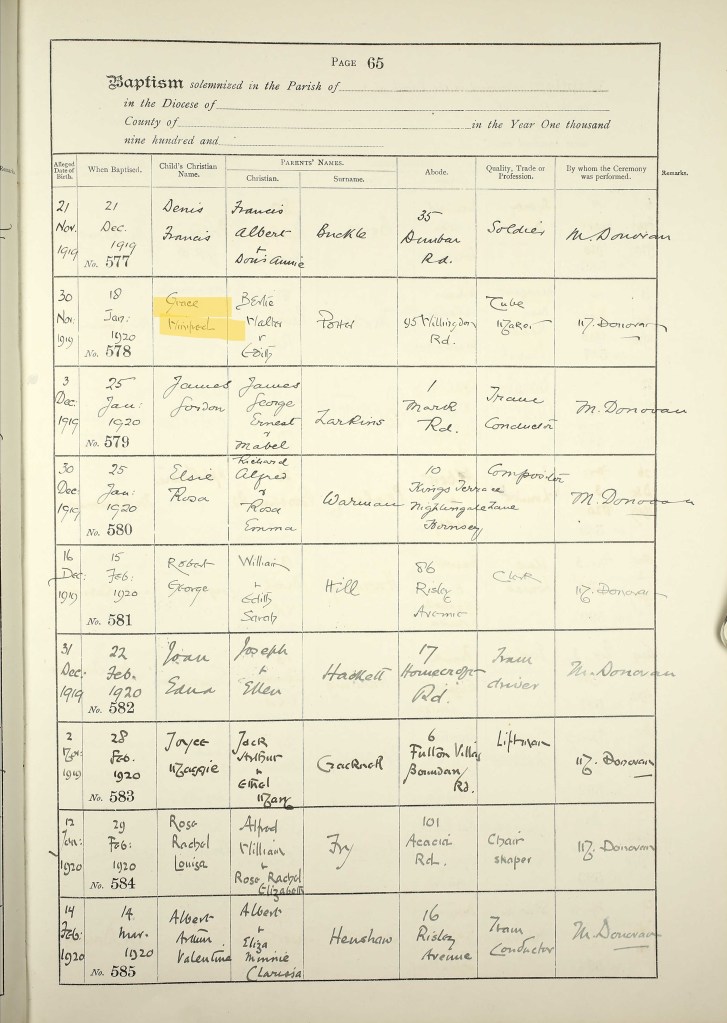 PAGE 65
Baptism solemnized in the Parish of
in the Diocese of
County of in the Year One thousand
nine hundred and
Alleged Date of Birth. When Baptised. Child's Christian Name. PARENTS' NAMES. Christian. Surname. Abode. Quality, Trade or Profession. By whom the Ceremony was performed. Remarks.
21 21 Denis Francis 35
Nov. Dec. Francis Albert Buckle Dunbar Soldier M. Donovan
1919 1919 + Doris Annie Rd.
No. 577
30 18 Grace Bertie Tube
Nov: Jan: Winifred Walter Potter 95 Willingdon Maker M. Donovan
1919 1920 + Edith Rd.
No. 578
3 25 James James 1 Tram
Dec. Jan: Gordon George Larkins Mark Conductor M. Donovan
1919 1920 Ernest + Mabel Rd.
No. 579
30 25 Elsie Richard Alfred 10 Compositor
Dec. Jan: Rosa + Rosa Warman Kings Terrace M. Donovan
1919 1920 Emma Nightingale Lane
No. 580 Hornsey
16 15 Robert William 86
Dec: Feb: George + Edith Hill Risley Clerk M. Donovan
1919 1920 Sarah Avenue
No. 581
31 22 Joan Joseph 17 Tram
Dec. Feb. Edna + Ellen Hackett Homecroft driver M. Donovan
1919 1920 Rd.
No. 582
2 28 Joyce Jack 6 Liftman
Feb. Maggie Arthur Fulton Villas M. Donovan
1919 1920 + Ethel Boundary
No. 583 Mary Rd.
12 29 Rose Alfred 101
Jan: Feb: Rachel William Fry Acacia Chair M. Donovan
1920 1920 Louisa + Rose Rachel Rd. shaper
No. 584 Elizabeth
14 14 Albert Albert 16 Tram
Feb: Mar. Arthur + Eliza Henshaw Risley Conductor M. Donovan
1920 1920 Valentine Minnie Avenue
No. 585 Clarissa